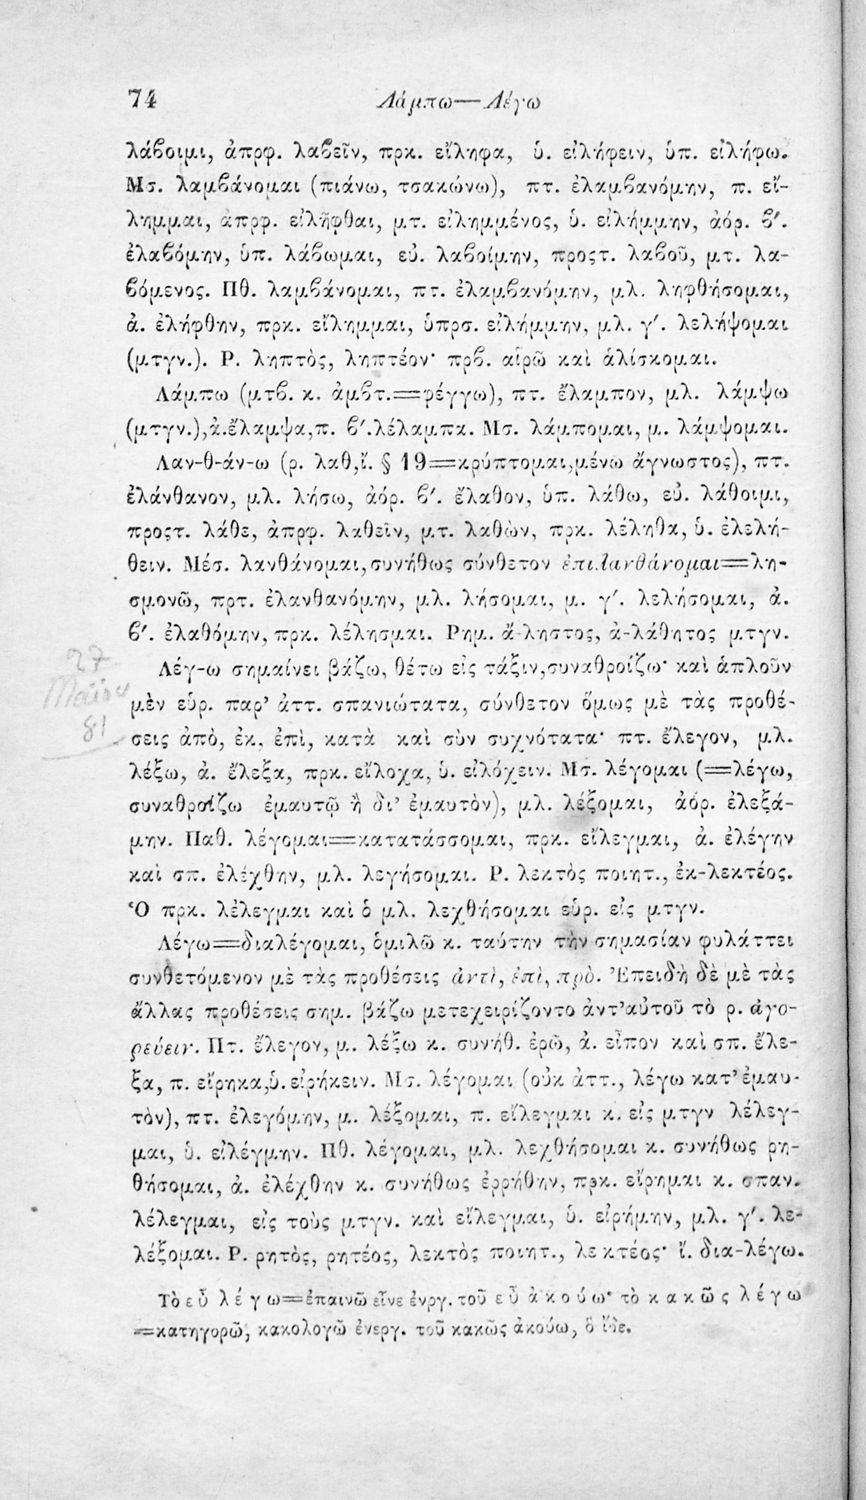 74 Λάμπω—Λέγω
λάβοιμι, ἀπρφ. λαβεῖν, πρκ. εἴληφα, ὑ. εἰλήφειν, ὑπ. εἰλήφω.
Μσ. λαμβάνομαι (πιάνω, τσακώνω), πτ. ἐλαμβανόμην, π. εἴ-
λημμαι, ἀπρφ. εἰλῆφθαι, μτ. εἰλημμένος, ὑ. εἰλήμμην, ἀόρ. β'.
ἐλαβόμην, ὑπ. λάβωμαι, εὐ. λαβοίμην, προςτ. λαβοῦ, μτ. λα-
βόμενος. Πθ. λαμβάνομαι, πτ. ἐλαμβανόμην, μλ. ληφθήσομαι,
ἀ. ἐλήφθην, πρκ. εἴλημμαι, ὑπρσ. εἰλήμμην, μλ. γ'. λελήψομαι
(μτγν.). Ρ. ληπτὸς, ληπτέον· πρβ. αἱρῶ καὶ ἁλίσκομαι.
Λάμπω (μτβ. κ. ἀμβτ.=φέγγω), πτ. ἔλαμπον, μλ. λάμψω
(μτγν.),ἀ.ἔλαμψα,π. β'.λέλαμπα. Μσ. λάμπομαι, μ. λάμψομαι.
Λαν-θ-άν-ω (ρ. λαθ,ἴ. § 19=κρύπτομαι,μένω ἄγνωστος), πτ.
ἐλάνθανον, μλ. λήσω, ἀόρ. β'. ἔλαθον, ὑπ. λάθω, εὐ. λάθοιμι,
προςτ. λάθε, ἀπρφ. λαθεῖν, μτ. λαθὼν, πρκ. λέληθα, ὑ. ἐλελή-
θειν. Μέσ. λανθάνομαι,συνήθως σύνθετον ἐπιλανθάνομαι=λη-
σμονῶ, πρτ. ἐλανθανόμην, μλ. λήσομαι, μ. γ'. λελήσομαι, ἀ.
β'. ἐλαθόμην, πρκ. λέλησμαι. Ρημ. ἄ-ληστος, ἀ-λάθητος μτγν.
27
Μαΐου
81
Λέγ-ω σημαίνει βάζω, θέτω εἰς τάξιν,συναθροίζω· καὶ ἁπλοῦν
μὲν εὑρ. παρ' ἀττ. σπανιώτατα, σύνθετον ὅμως μὲ τὰς προθέ-
σεις ἀπὸ, ἐκ, ἐπὶ, κατὰ καὶ σὺν συχνότατα· πτ. ἔλεγον, μλ.
λέξω, ἀ. ἔλεξα, πρκ. εἴλοχα, ὑ. εἰλόχειν. Μσ. λέγομαι (=λέγω,
συναθροίζω ἐμαυτῷ ἢ δι' ἐμαυτὸν), μλ. λέξομαι, ἀόρ. ἐλεξά-
μην. Παθ. λέγομαι=κατατάσσομαι, πρκ. εἴλεγμαι, ἀ. ἐλέγην
καὶ σπ. ἐλέχθην, μλ. λεγήσομαι. Ρ. λεκτὸς ποιητ., ἐκ-λεκτέος.
Ὁ πρκ. λέλεγμαι καὶ ὁ μλ. λεχθήσομαι εὑρ. εἰς μτγν.
Λέγω=διαλέγομαι, ὁμιλῶ κ. ταύτην τὴν σημασίαν φυλάττει
συνθετόμενον μὲ τὰς προθέσεις ἀντὶ, ἐπὶ, πρὸ. Ἐπειδὴ δὲ μὲ τὰς
ἄλλας προθέσεις σημ. βάζω μετεχειρίζοντο ἀντ'αὐτοῦ τὸ ρ. ἀγο-
ρεύειν. Πτ. ἔλεγον, μ. λέξω κ. συνήθ. ἐρῶ, ἀ. εἶπον καὶ σπ. ἔλε-
ξα, π. εἴρηκα,ὑ. εἰρήκειν. Μσ. λέγομαι (οὐκ ἀττ., λέγω κατ'ἐμαυ-
τὸν), πτ. ἐλεγόμην, μ. λέξομαι, π. εἴλεγμαι κ. εἰς μτγν λέλεγ-
μαι, ὑ. εἰλέγμην. Πθ. λέγομαι, μλ. λεχθήσομαι κ. συνήθως ρη-
θήσομαι, ἀ. ἐλέχθην κ. συνήθως ἐρρήθην, πρκ. εἴρημαι κ. σπαν.
λέλεγμαι, εἰς τοὺς μτγν. καὶ εἴλεγμαι, ὑ. εἰρήμην, μλ. γ'. λε-
λέξομαι. Ρ. ρητὸς, ρητέος, λεκτὸς ποιητ., λεκτέος· ἴ. δια-λέγω.
Τὸ εὖ λέγω=ἐπαινῶ εἶνε ἐνργ. τοῦ εὖ ἀκούω· τὸ κακῶς λέγω
=κατηγορῶ, κακολογῶ ἐνεργ. τοῦ κακῶς ἀκούω, ὃ ἴδε.